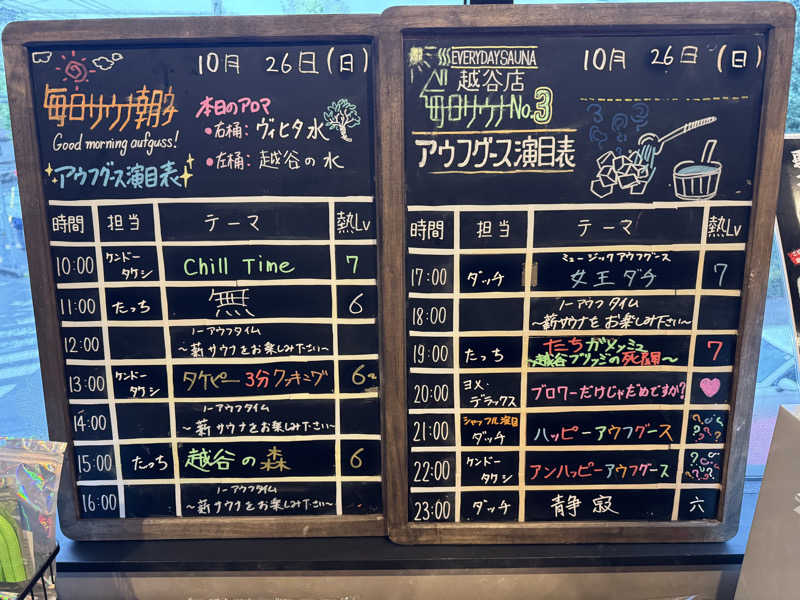 10月 26日(日)
毎日サウナ朝子
Good morning aufguss!
アウフグース演目表
本日のアロマ
•右桶：ヴィヒタ水
•左桶：越谷の水
時間 担当 テーマ 熱Lv
10:00 ケンドータケシ Chill Time 7
11:00 たっち 無 6
12:00 ノーアウフタイム
～薪サウナをお楽しみ下さい～
13:00 ケンドータケシ タケピー3分クッキング 6
14:00 ノーアウフタイム
～薪サウナをお楽しみ下さい～
15:00 たっち 越谷の森 6
16:00 ノーアウフタイム
～薪サウナをお楽しみ下さい～
10月 26日(日)
EVERYDAYSAUNA
越谷店
毎日サウナNo.3
アウフグース演目表
時間 担当 テーマ 熱Lv
17:00 ダッチ ミュージックアウフグース
女王ダチ 7
18:00 ノーアウフタイム
～薪サウナをお楽しみ下さい～
19:00 たっち たちがメッシュ
～越谷ブリッジの死闘～ 7
20:00 ヨメ・デラックス ブロワーだけじゃだめですか?
21:00 シャッフル演目
ダッチ ハッピーアウフグース
22:00 ケンドータケシ アンハッピーアウフグース
23:00 ダッチ 静寂 六